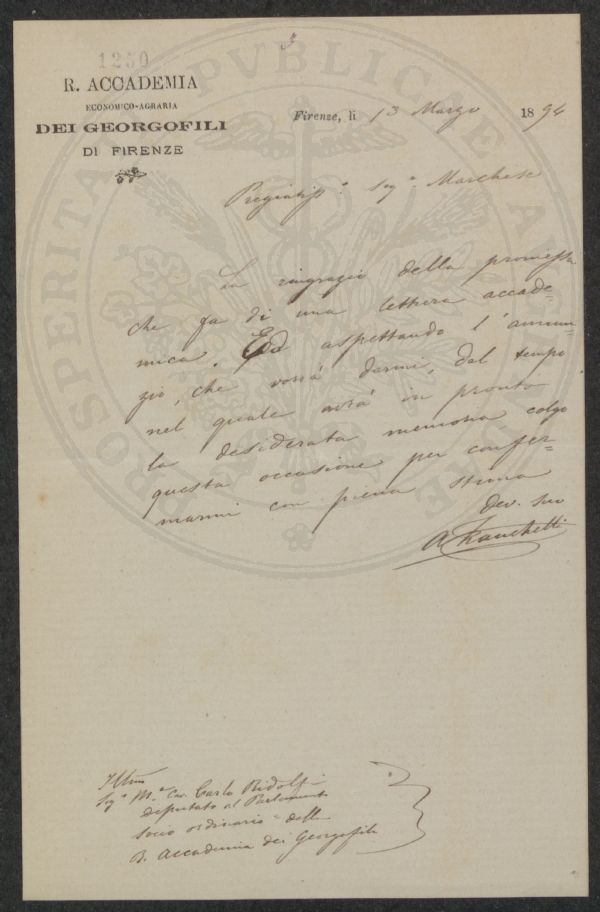 1250
R. ACCADEMIA
ECONOMICO-AGRARIA
DEI GEORGOFILI
DI FIRENZE
PROSPERITATI PVBLICAE AVGENDAE
Firenze, li 13 Marzo 1894
Pregiatiss.º Sig.r Marchese
La ringrazio della promessa
che fa di una lettura accade-
mica. Ed aspettando l'annun-
zio, che vorrà darmi, del tempo
nel quale avrà in pronto
la desiderata memoria colgo
questa occasione per confer-
marmi con piena stima
dev. suo
A. Franchetti
Illmo
Sig.r M.e Cav. Carlo Ridolfi
deputato al Parlamento
socio ordinario della
R. Accademia dei Georgofili